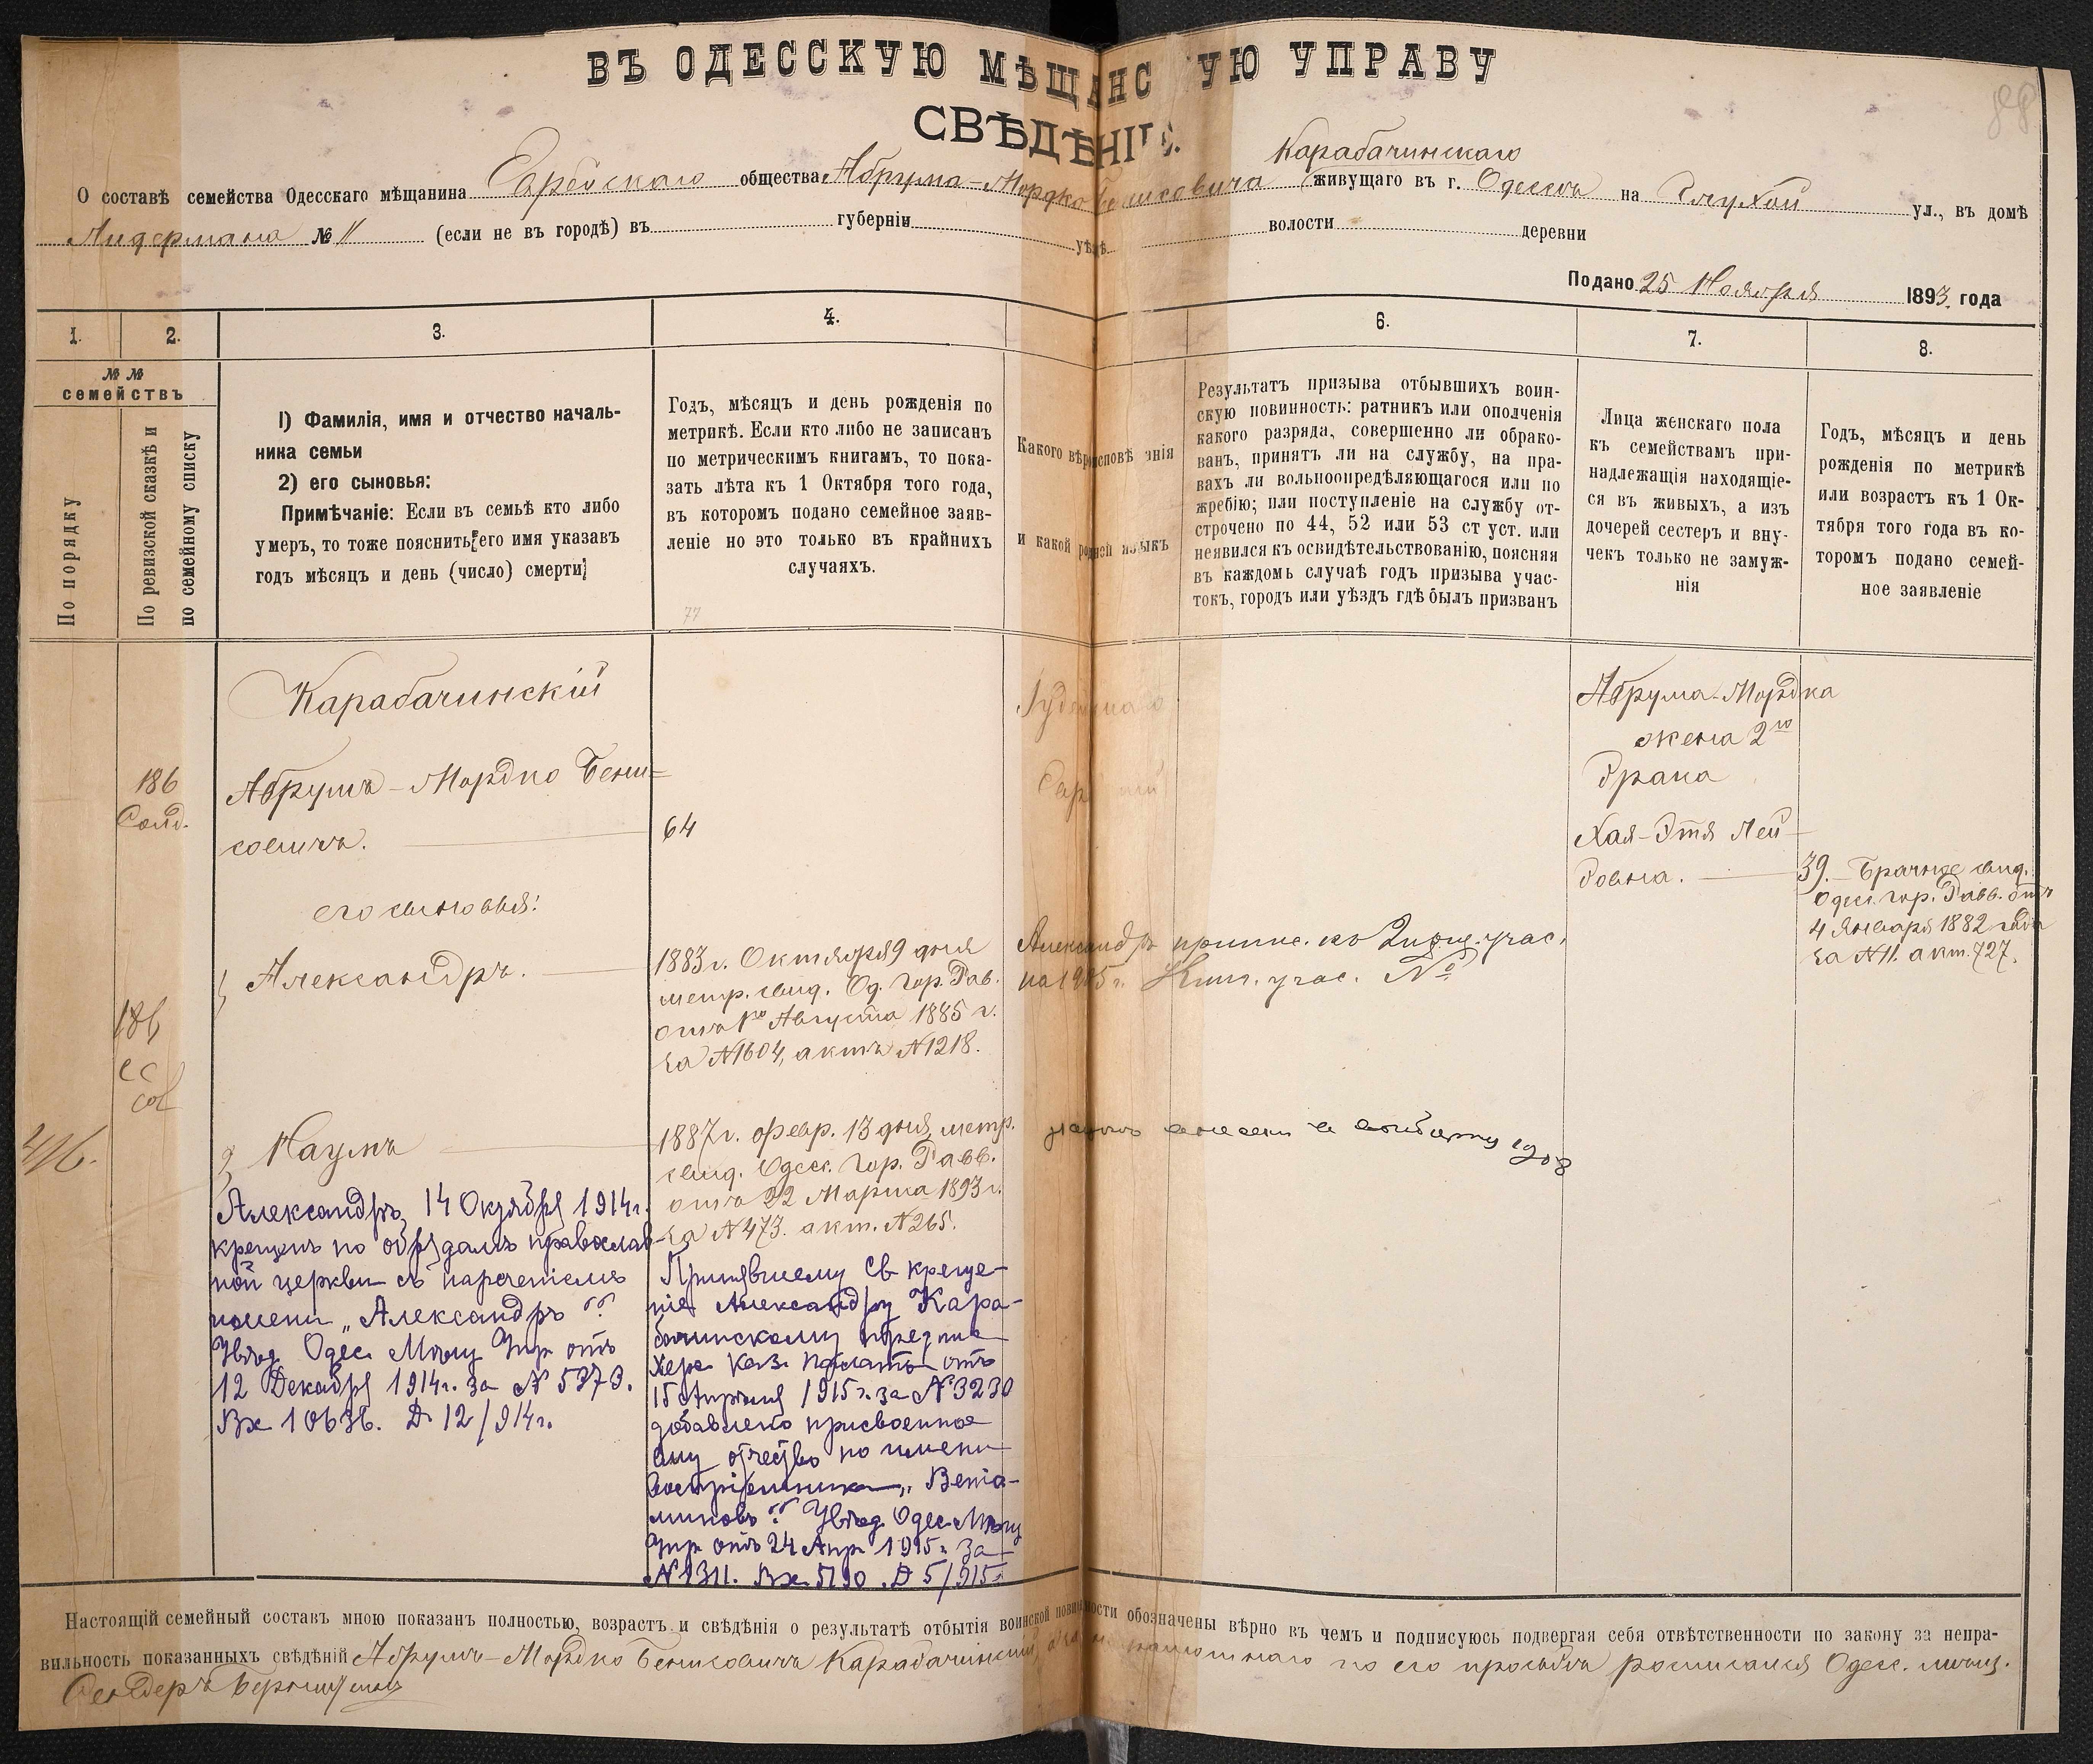 ВЪ ОДЕССКУЮ МѢЩАНС УЮ УПРАВУ
СВѢДѢНІЕ.
Карабачинскаго
О составѣ семейства Одесскаго мѣщанина Еврейскаго общества Абрума-Мордко Бенисовича живущаго въ г. Одессѣ на Глухой ул., въ домѣ
Лидермана № 11 (если не въ городѣ) въ губерніи уѣздѣ волости деревни
Подано 25 Ноября 1893 года
1. 2. 3. 4. 6. 7. 8.
№ №
семействъ
По порядку
По ревизской сказкѣ и
по семейному списку
1) Фамилія, имя и отчество началь-
ника семьи
2) его сыновья:
Примѣчаніе: Если въ семьѣ кто либо
умеръ, то тоже пояснить его имя указавъ
годъ мѣсяцъ и день (число) смерти
Годъ, мѣсяцъ и день рожденія по
метрикѣ. Если кто либо не записанъ
по метрическимъ книгамъ, то пока-
зать лѣта къ 1 Октября того года,
въ котором подано семейное заяв-
леніе но это только въ крайнихъ
случаяхъ.
77
Какого вѣроисповѣ анія
и какой родной языкъ
Результатъ призыва отбывшихъ воин-
скую повинность: ратникъ или ополченія
какого разряда, совершенно ли обрако-
ванъ, принятъ ли на службу, на пра-
вахъ ли вольноопредѣляющагося или по
жребію; или поступленіе на службу от-
строчено по 44, 52 или 53 ст уст. или
неявился къ освидѣтельствованію, поясняя
въ каждомъ случаѣ годъ призыва учас-
токъ, городъ или уѣздъ гдѣ былъ призванъ
Лица женскаго пола
къ семействамъ при-
надлежащія находящіе-
ся въ живыхъ, а изъ
дочерей сестеръ и вну-
чекъ только не замуж-
нія
Годъ, мѣсяцъ и день
рожденія по метрикѣ
или возрастъ къ 1 Ок-
тября того года въ ко-
торомъ подано семей-
ное заявленіе
Карабачинскій
186
Солд.
Абрумъ-Мордко Бени=
совичъ.
64
его сыновья:
1) Александръ.
1883 г. Октября 9 дня
метр. свид. Од. Гор. Рав.
отъ 1го Августа 1885 г.
за №1604, актъ №1218.
186
416.
2) Наумъ
1887 г. февр. 13 дня, метр.
свид. Одесс. Гор. Равв.
отъ 22 Марта 1893 г.
за №473. акт. №265.
Александръ, 14 Октября 1914 г.
крещенъ по обрядамъ православ-
ной церкви съ нареченіемъ
имени „Александръ“.
Увѣд Одес Мѣщ Упр отъ
12 Декабря 1914 г. за № 5373.
Вх 10636. Д 12/914 г.
Принявшему Св креще-
ніе Александру Кара-
бачинскому предпис
Херс Каз Палаты отъ
15 Апрѣля 1915 г. за №3230
добавлено присвоенное
ему отчество по имени
воспріемника „Веніа-
миновъ“. Увѣд Одес Мѣщ
Упр отъ 24 Апр 1915 г. за
№1311. Вх 5190. Д 5/915 г.
Іудейскаго
Александръ припис. къ 2 приз. учас.
на 1905 г. учас. №
1908
Абрума-Мордка
жена 2го
брака
Хая-Этя Лей-
бовна.
39. Брачное свид.
Одес. гор. Равв. отъ
4 Января 1882 года
за №11. акт. 727.
Настоящій семейный составъ мною показанъ полностью, возрастъ и свѣдѣнія о результатѣ отбытія воинской повинности обозначены вѣрно въ чемъ и подписуюсь подвергая себя отвѣтственности по закону за непра-
вильность показанныхъ свѣдѣній Абрумъ-Мордко Бенисовичъ Карабачинскій, а за неграмотнаго по его просьбѣ росписался Одесс. мѣщ.
Сендеръ